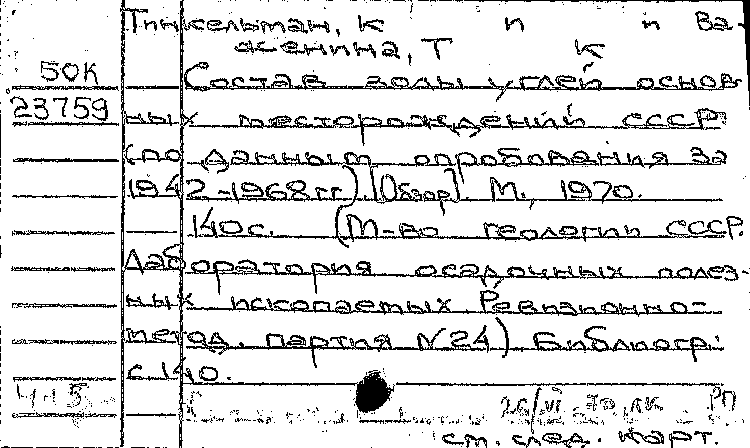 Тинкельман, К п и Ва-
женина, Т К
50К
Состав золы углей основ-
23759
ных месторождений СССР
(по данным опробования за
1942-1968гг) [Обзор]. М., 1970.
140с. (М-во геологии СССР.
Лаборатория осадочных полез-
ных ископаемых Ревизионно-
метод. партия №24) Библиогр.:
с. 140.
4-5
26/VI 70 РП
см. след. карт.